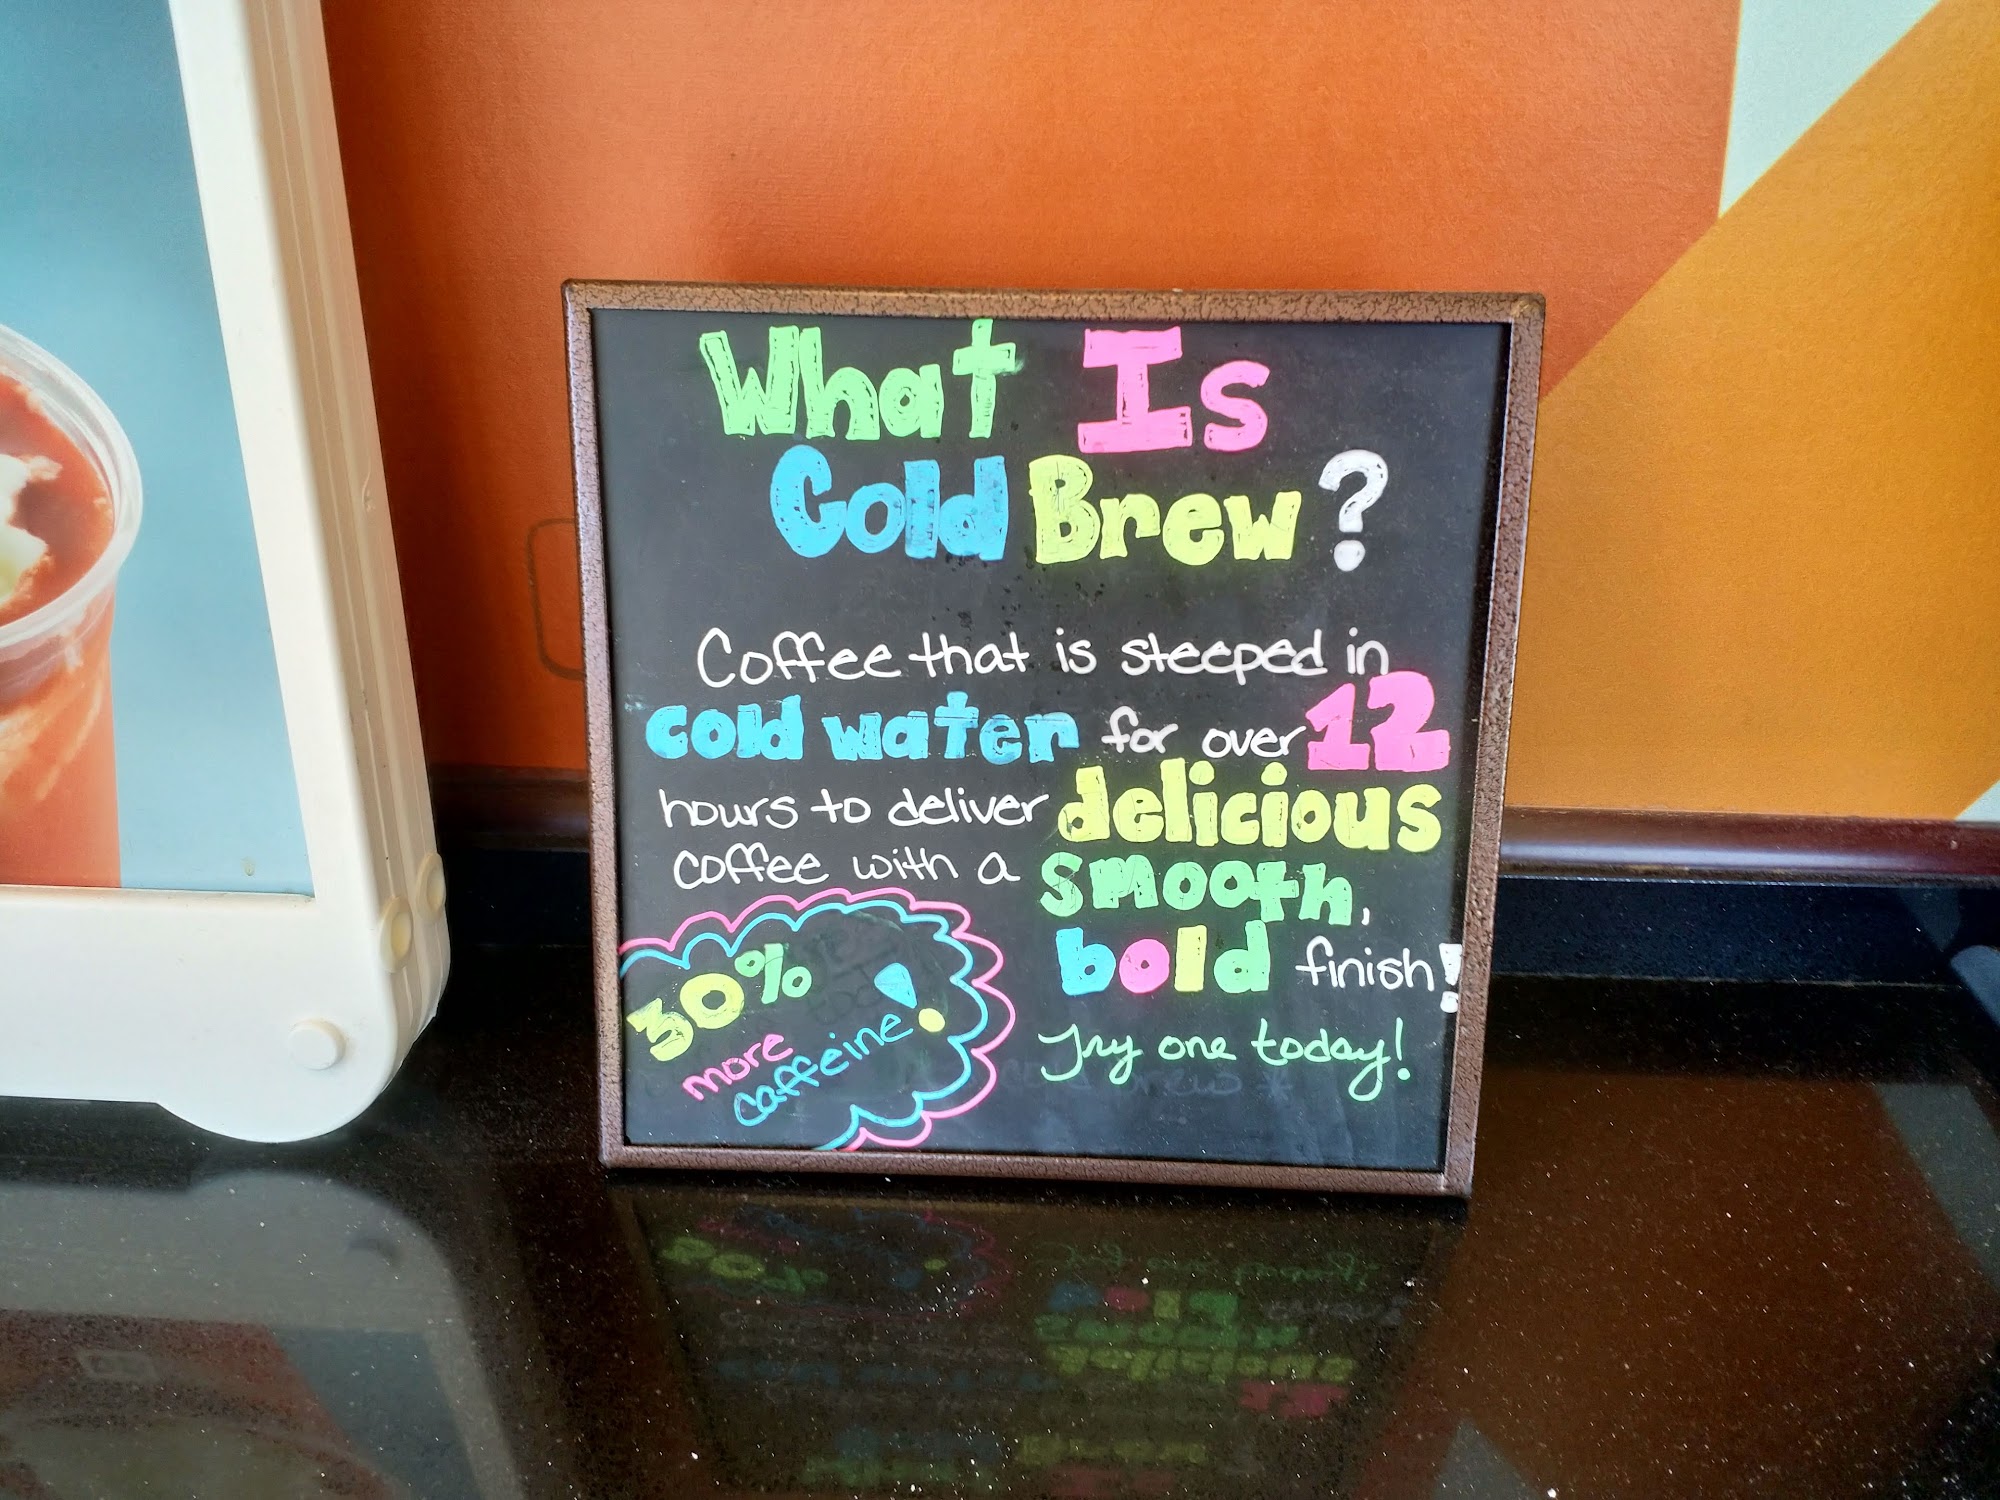 What Is
Cold Brew?
Coffee that is steeped in
cold water for over 12
hours to deliver delicious
coffee with a smooth,
bold finish!
30%
more
caffeine!
Try one today!